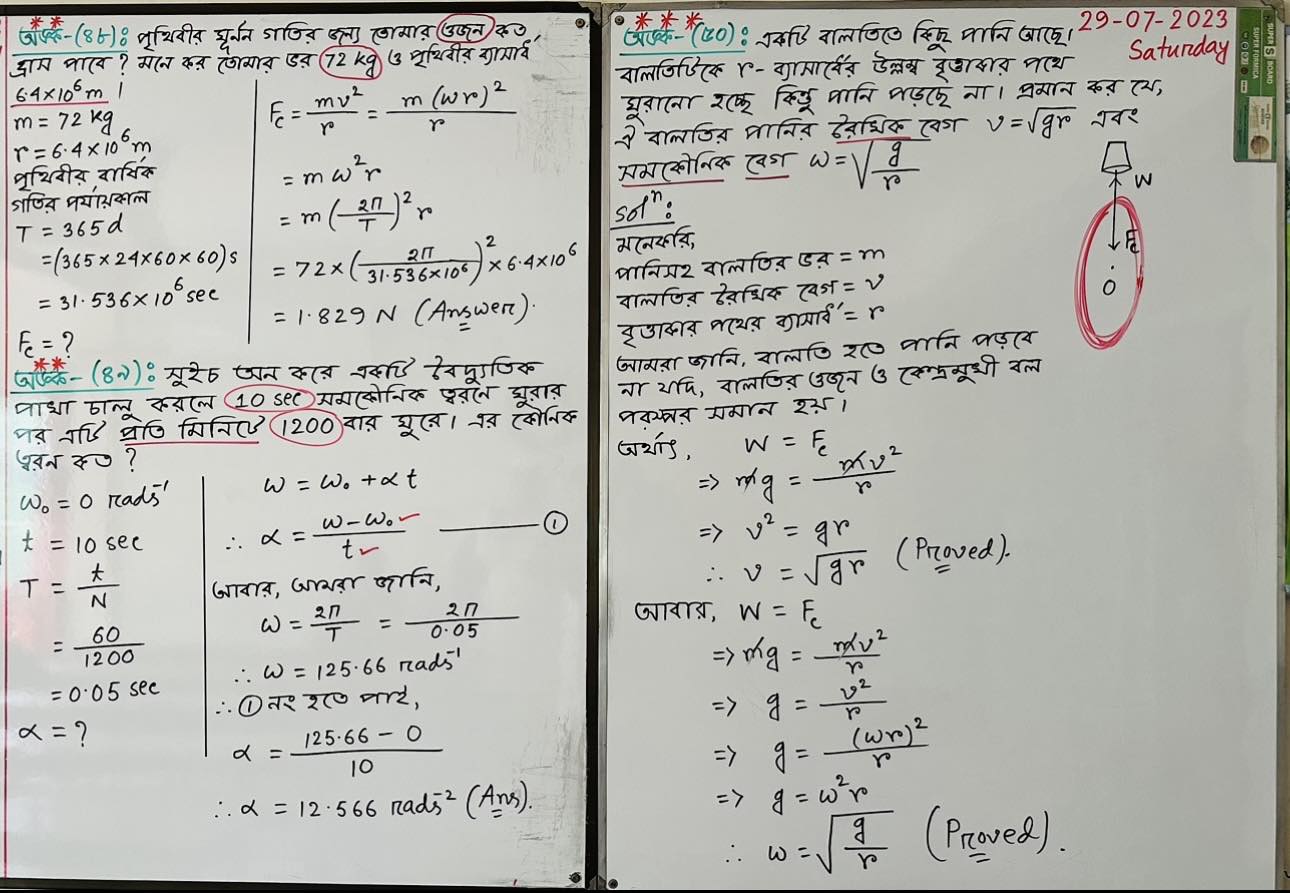 অংক-(৪৮): পৃথিবীর ঘূর্নন গতির জন্য তোমার ওজন কত
হ্রাস পাবে? মনে কর তোমার ভর 72 kg ও পৃথিবীর ব্যাসার্ধ
6.4×10⁶ m।
m = 72 kg
r = 6.4×10⁶ m
পৃথিবীর বার্ষিক
গতির পর্যায়কাল
T = 365 d
= (365×24×60×60) s
= 31.536×10⁶ sec
F_c = ?
F_c = mv²/r = m(ωr)²/r
= m ω² r
= m (2π/T)² r
= 72 × (2π/31.536×10⁶)² × 6.4×10⁶
= 1.829 N (Answer).
অংক-(৪৯): সুইচ অন করে একটি বৈদ্যুতিক
পাখা চালু করলে 10 sec সমকৌনিক ত্বরনে ঘুরার
পর এটি প্রতি মিনিটে 1200 বার ঘুরে। এর কৌনিক
ত্বরন কত?
ω₀ = 0 rads⁻¹
t = 10 sec
T = t/N
= 60/1200
= 0.05 sec
α = ?
ω = ω₀ + αt
∴ α = ω-ω₀/t ——— ①
আবার, আমরা জানি,
ω = 2π/T = 2π/0.05
∴ ω = 125.66 rads⁻¹
∴ ① নং হতে পাই,
α = 125.66 - 0/10
∴ α = 12.566 rads⁻² (Ans).
29-07-2023
Saturday
অংক-(৫০): একটি বালতিতে কিছু পানি আছে।
বালতিটিকে r-ব্যাসার্ধের উল্লম্ব বৃত্তাকার পথে
ঘুরানো হচ্ছে কিন্তু পানি পড়ছে না। প্রমান কর যে,
ঐ বালতির পানির রৈখিক বেগ v = √gr এবং
সমকৌনিক বেগ ω = √g/r
W
F_c
O
Solⁿ:
মনেকরি,
পানিসহ বালতির ভর = m
বালতির রৈখিক বেগ = v
বৃত্তাকার পথের ব্যাসার্ধ = r
আমরা জানি, বালতি হতে পানি পড়বে
না যদি, বালতির ওজন ও কেন্দ্রমুখী বল
পরস্পর সমান হয়।
অর্থাৎ, W = F_c
=> mg = mv²/r
=> v² = gr
∴ v = √gr (Proved).
আবার, W = F_c
=> mg = mv²/r
=> g = v²/r
=> g = (ωr)²/r
=> g = ω²r
∴ ω = √g/r (Proved).
SUPER S BOARD
SUPER FORMICA